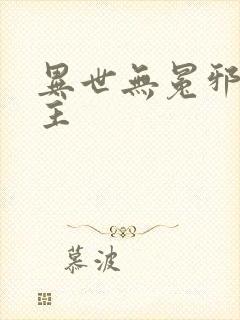 異世無冕邪王
慕波